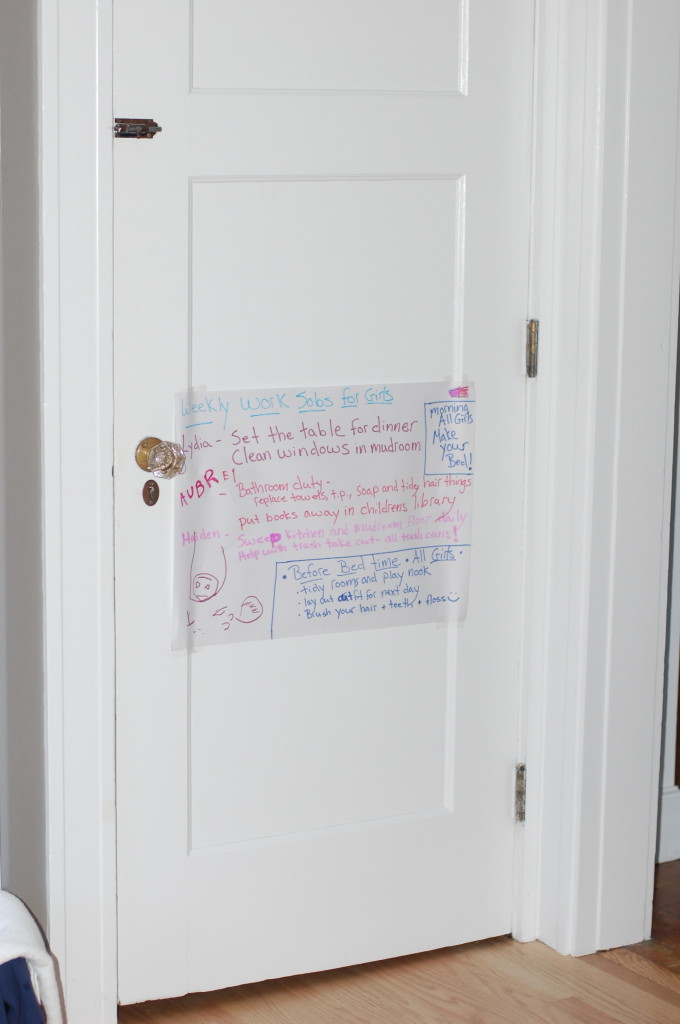 Weekly Work Jobs for Girls
morning
All Girls
Make
your
Bed!
Lydia - Set the table for dinner
Clean windows in mudroom
AUBRE!
- Bathroom duty -
replace towels, t.p., soap and tidy hair things
put books away in childrens library
Haiden - Sweep kitchen and mudroom floor daily
Help with trash take out - all trash cans!
• Before Bed time • All Girls •
• tidy rooms and play nook
• lay out outfit for next day
• Brush your hair + teeth + floss